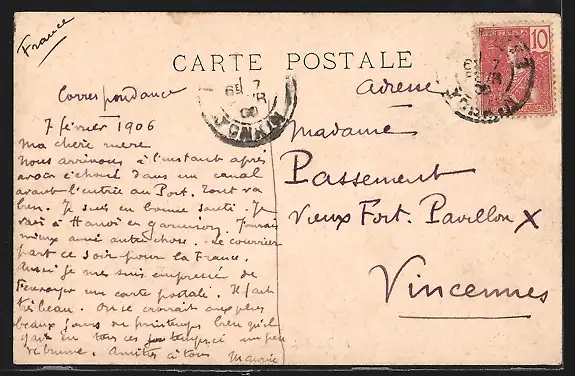 France
CARTE POSTALE
10
Correspondance
adresse
7 février 1906
Ma chère mère
Nous arrivons à l'instant après
avoir échoué dans un canal
avant l'entrée au Port. Tout va
bien. Je suis en bonne santé. Je
vais à Hanoï en garnison. J'aurais
mieux aimé autre chose. Le courrier
part ce soir pour la France.
Aussi je me suis empressé de
t'envoyer une carte postale. Il fait
très beau. On se croirait aux plus
beaux jours de printemps bien qu'il
y ait en tous ces temps ci un peu
de brume. Amitiés à tous
Maurice
Madame
Passement
Vieux Fort. Pavillon X
Vincennes
TONKIN
TONKIN